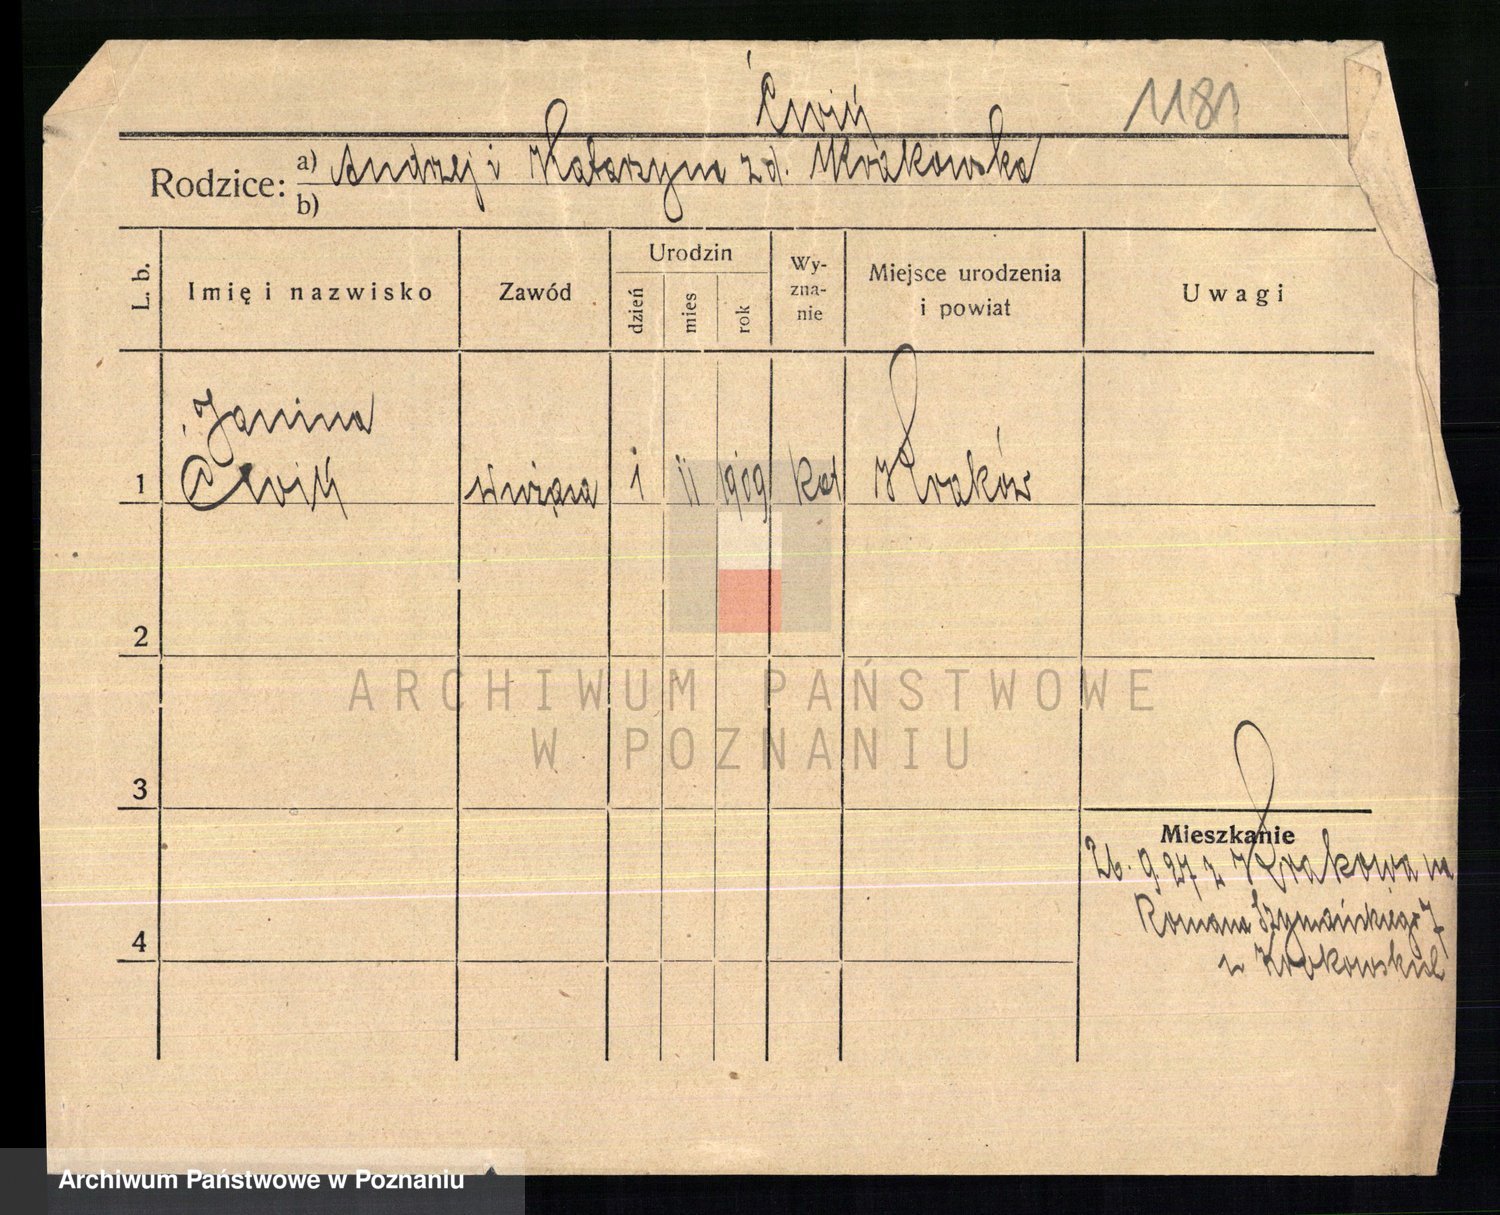 Ćwiń
1181
Rodzice: a) Andrzej i Katarzyna z d. Krakowska
b)
L. b.
Imię i nazwisko
Zawód
Urodzin
dzień
mies
rok
Wy-
zna-
nie
Miejsce urodzenia
i powiat
Uwagi
Janina
1 Ćwiń służąca 1 II 1909 kat Kraków
2
3
4
Mieszkanie
26. 9. 27 z Krakowa na
Romana Szymańskiego 7
u
ARCHIWUM PAŃSTWOWE
W POZNANIU
Archiwum Państwowe w Poznaniu